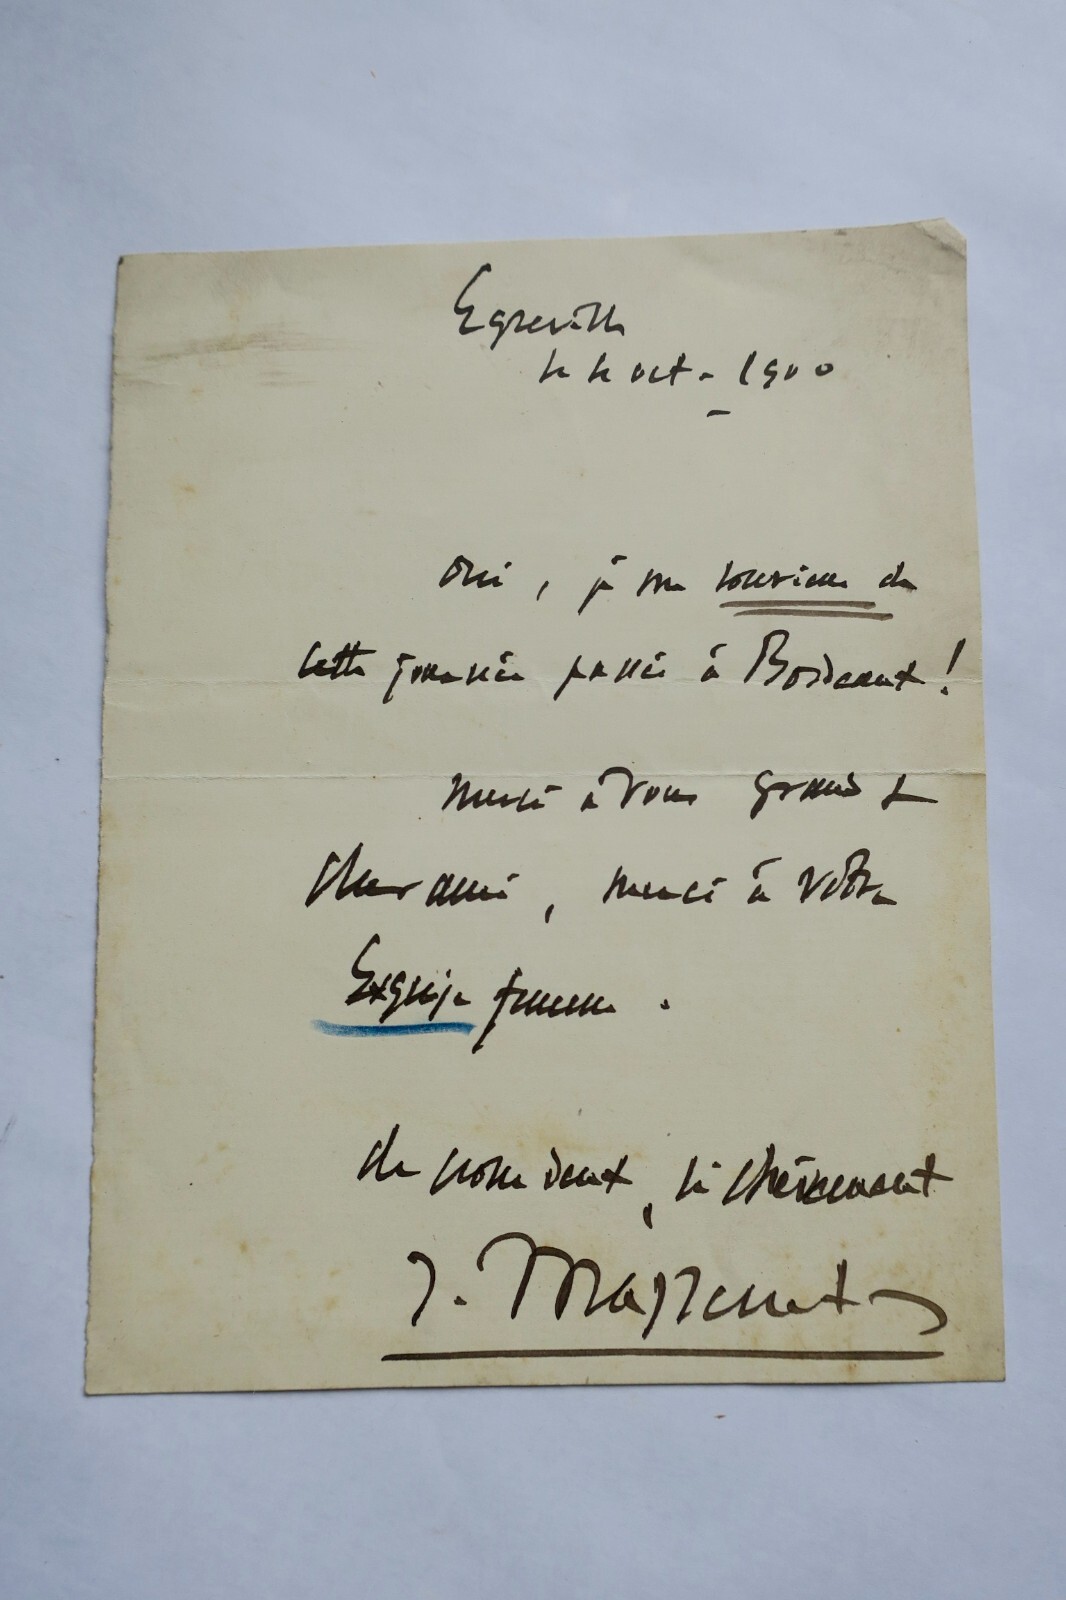 Egreville
le 6 oct - 1900
oui, je me souviens de
cette journée passée à
merci à vous grand &
cher ami, merci à votre
Exquise femme.
de votre dévot, si chèrement
J. Massenet